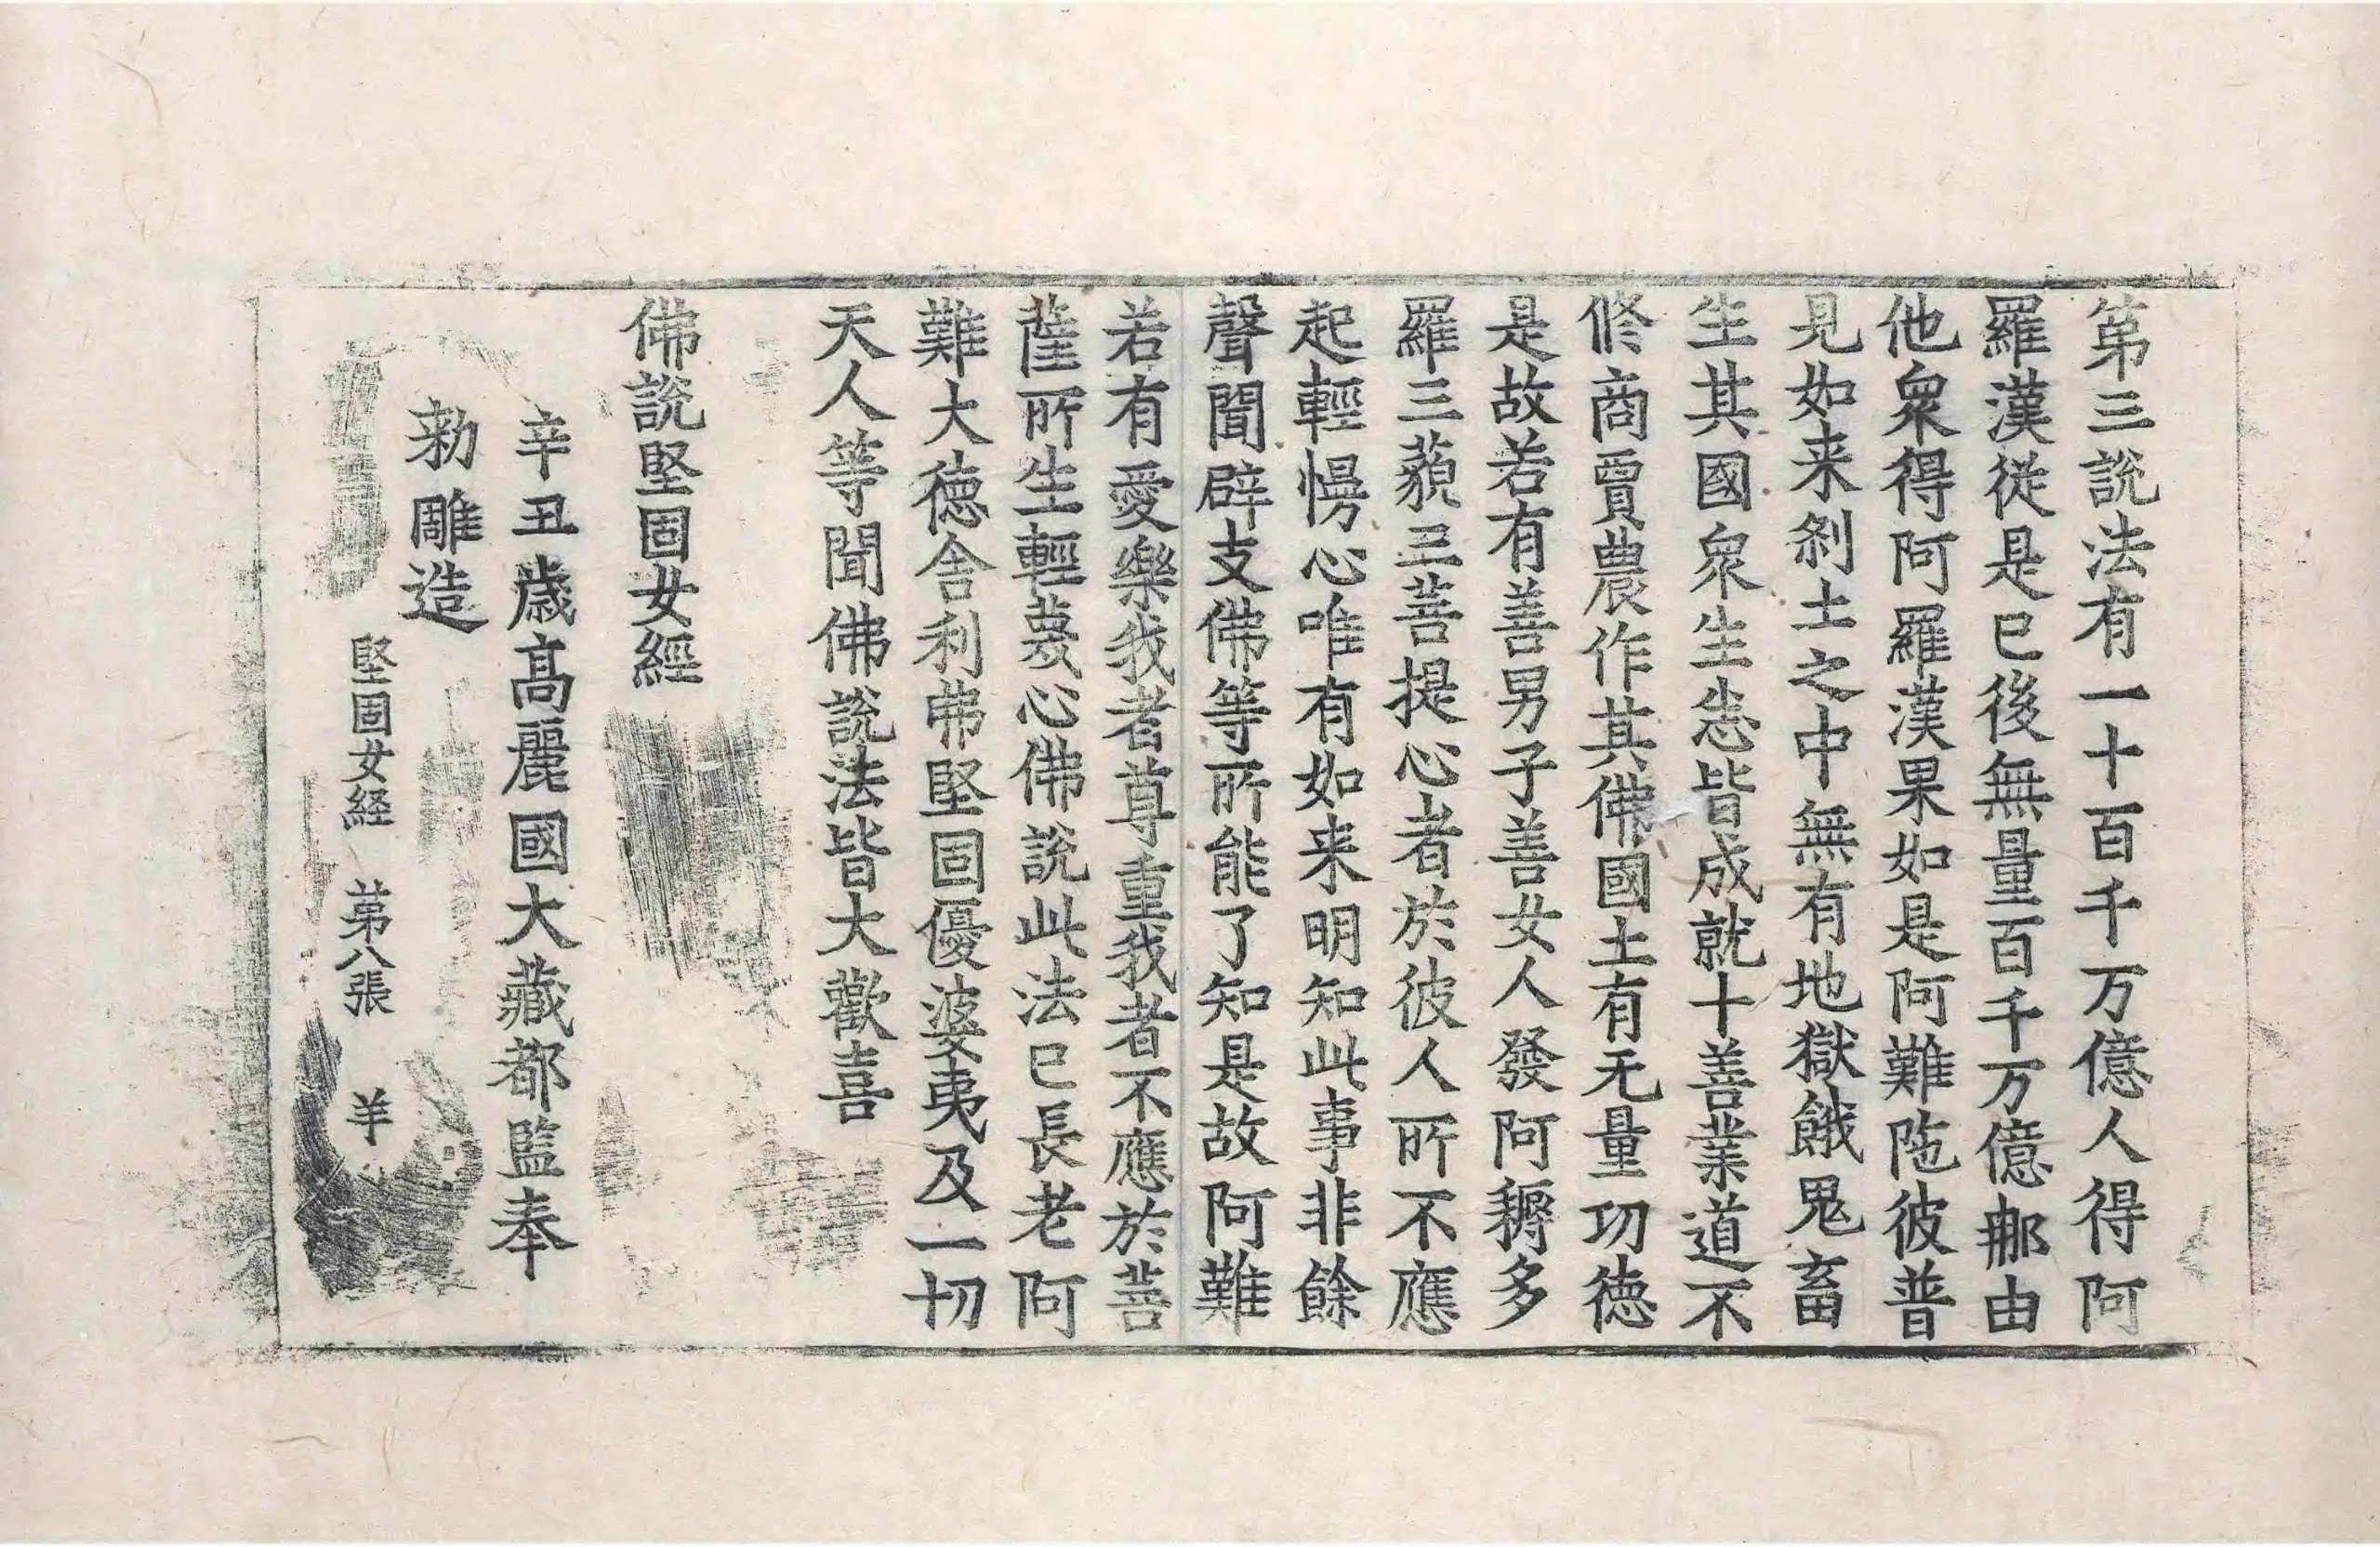 第三說法有一十百千万億人得阿
羅漢從是已後無量百千万億那由
他衆得阿羅漢果如是阿難陁彼普
見如来刹土之中無有地獄餓鬼畜
生其國衆生悉皆成就十善業道不
修商賈農作其佛國土有无量功德
是故若有善男子善女人發阿耨多
羅三藐三菩提心者於彼人所不應
起輕慢心唯有如来明知此事非餘
聲聞辟支佛等所能了知是故阿難
若有愛樂我者尊重我者不應於菩
薩所生輕蔑心佛說此法已長老阿
難大德舍利弗堅固優婆夷及一切
天人等聞佛說法皆大歡喜
佛說堅固女經
辛丑歲高麗國大藏都監奉
勅雕造
堅固女経 第八張 羊